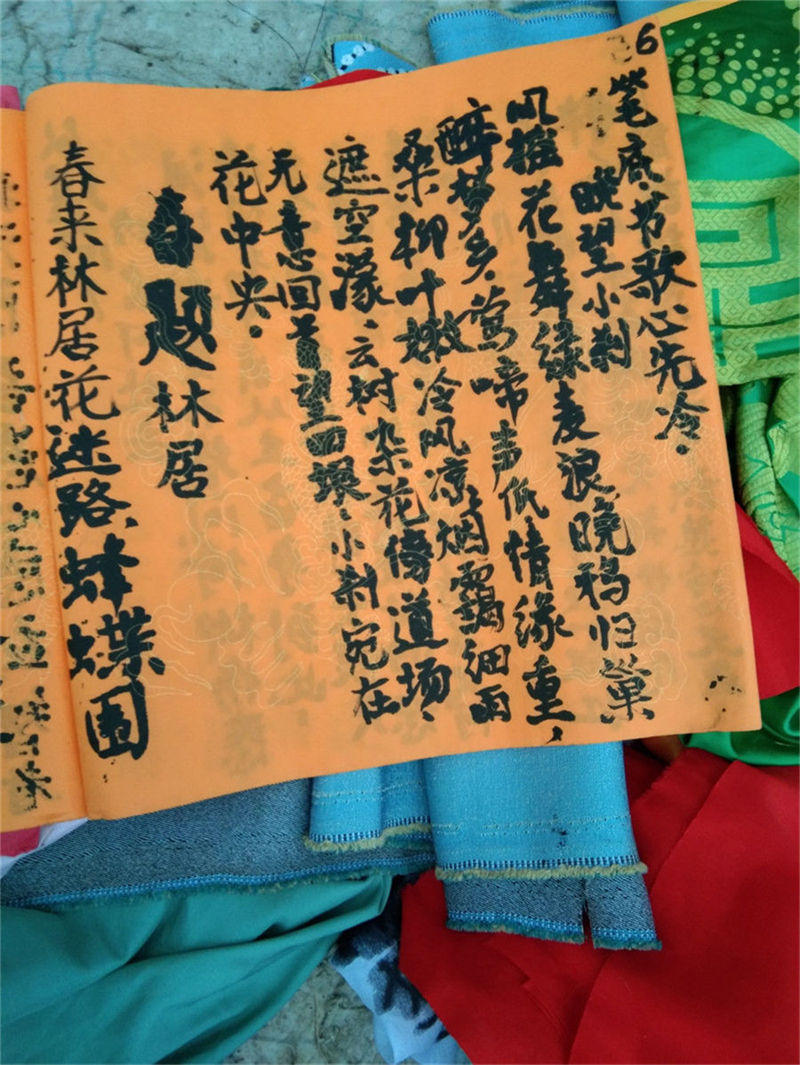 6
笔底书歌心先冷.
晚望小刹
风摇花舞绿麦浪晚鸦归巢
醉梦乡.莺啼声低情缘重,
桑柳叶嫩冷风凉.烟霭细雨
遮空濛、云树杂花傍道场.
无意回首望西垠.小刹宛在
花中央.
春题林居
春来林居花迷路、蜂蝶围